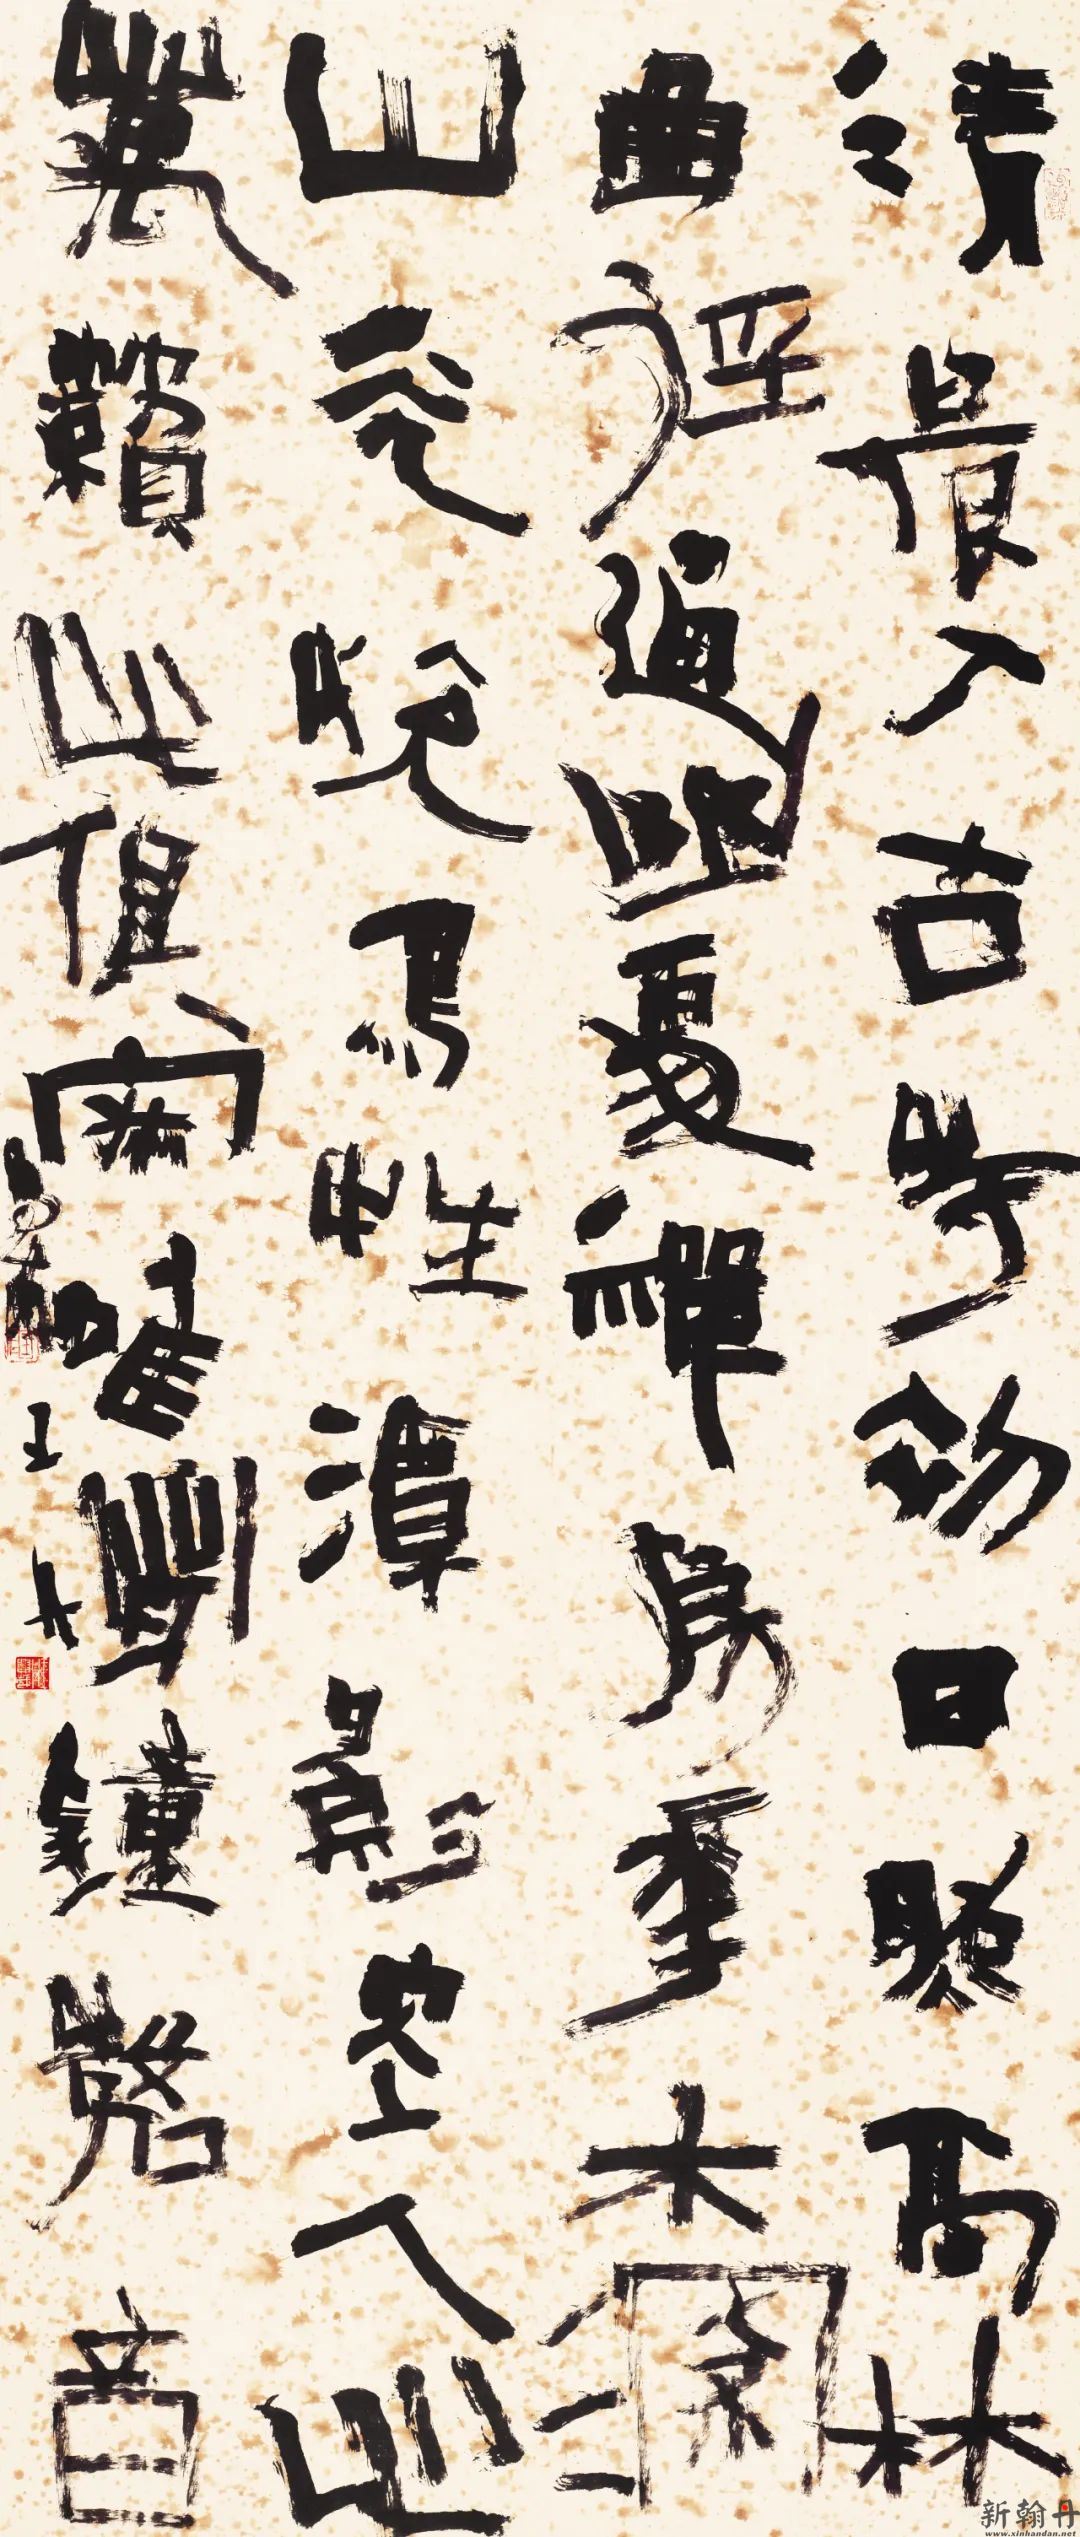 清晨入古寺初日照高林
曲徑通幽處禪房華木深
山光悅鳥性潭影空人心
萬籟此俱寂唯聞鐘磬音
王丹
新翰丹
www.xinhandan.net